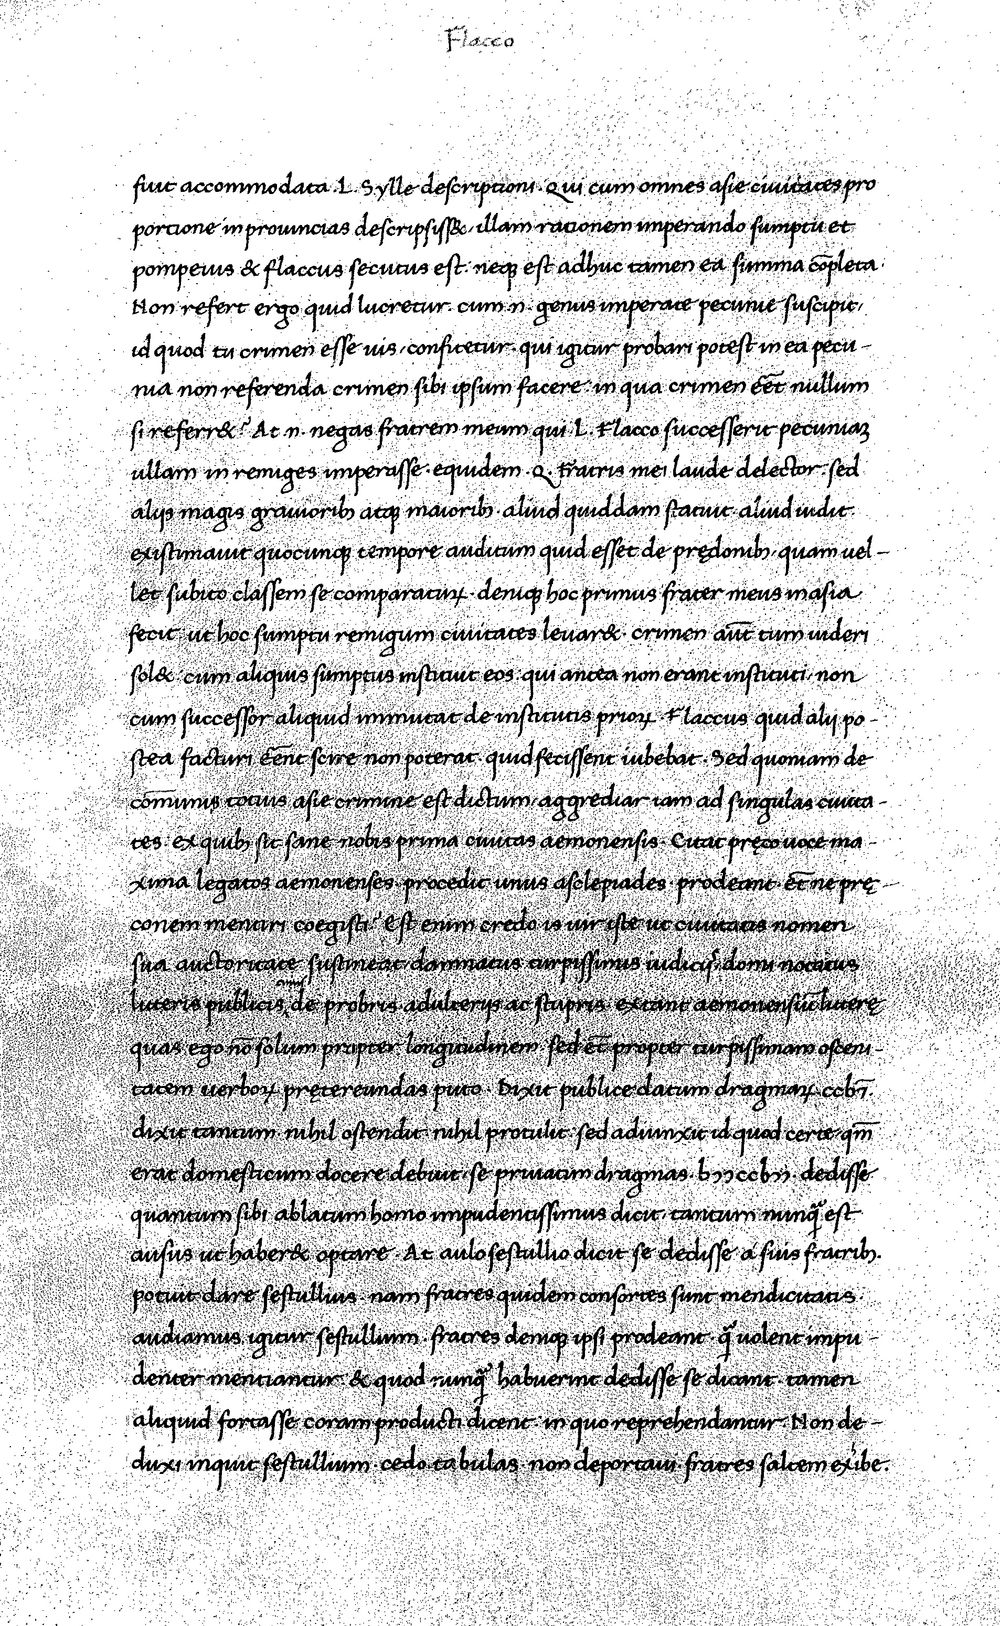 Flacco
fuit accommodata .L. Sylle descriptioni. Qui cum omnes asie ciuitates pro
portione in prouincias descripsiss&, illam rationem imperando sumptu et
pompeius & flaccus secutus est. neqꝫ est adhuc tamen ea summa cōpleta.
Non refert ergo quid lucretur. cum .n. genus imperate pecunie suscipit,
id quod tu crimen esse uis, confitetur. qui igitur probari potest in ea pecu-
nia non referenda crimen sibi ipsum facere. in qua crimen ēēt nullum
si referr&? At .n. negas fratrem meum qui .L. Flacco successerit pecuniaꝫ
ullam in remiges imperasse. equidem .Q. Fratris mei laude delector. sed
alijs magis grauioribꝫ atqꝫ maioribꝫ. aliud quiddam statuit. aliud uidit.
existimauit quocunqꝫ tempore auditum quid esset de prędonibꝫ, quam uel-
let subito classem se comparaturꝝ. deniqꝫ hoc primus frater meus in asia
fecit. ut hoc sumptu remigum ciuitates leuar&. crimen aūt tum uideri
sol&. cum aliquis sumptus instituit eos. qui antea non erant instituti. non
cum successor aliquid immutat de institutis prioꝝ. Flaccus quid alij po-
stea facturi ēēnt scire non poterat. quid fecissent iubebat. Sed quoniam de
cōmunis totius asie crimine est dictum, aggrediar iam ad singulas ciuita-
tes. ex quibꝫ sit sane nobis prima ciuitas aemonensis. Citat pręco uoce ma-
xima legatos aemonenses. procedit unus asclepiades. prodeant. ēt ne prę-
conem mentiri coegisti? Est enim credo is uir iste ut ciuitatis nomen
sua auctoritate sustineat. damnatus turpissimis iudicijs domi notatus
litteris publicis, de probris adulterijs ac stupris. extant aemonensiū litterę
quas ego nō solum propter longitudinem. sed ēt propter turpissimam obsceni-
tatem uerboꝝ prętereundas puto. Dixit publice datum dragmaꝝ
dixit tantum. nihil ostendit. nihil protulit. sed adiunxit id quod certe qm̄
erat domesticum docere debuit. se priuatim dragmas. dedisse
quantum sibi ablatum homo impudentissimus dicit. tantum nunq̄ est
ausus ut haber& optare. At aulo sestullio dicit se dedisse a suis fratribꝫ.
potuit dare sestullius. nam fratres quidem consortes sunt mendicitatis.
audiamus igitur sestullium. fratres deniqꝫ ipsi prodeant. q̄ uolent impu-
denter mentiantur. & quod nunq̄ habuerint dedisse se dicant. tamen
aliquid fortasse coram producti dicent. in quo reprehendantur. Non de-
duxi inquit sestullium. cedo tabulas. non deportaui. fratres saltem exibe.